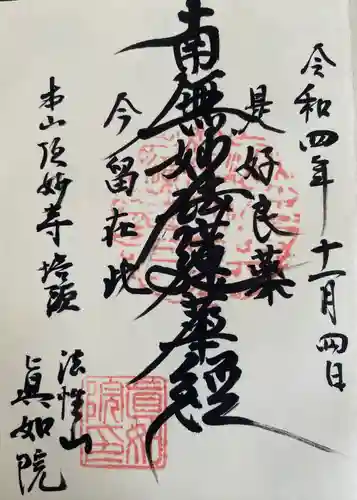 令和四年十一月四日
是好良薬
南無妙法蓮華経
今留在此
本山頂妙寺塔頭
法性山
真如院
真如院印